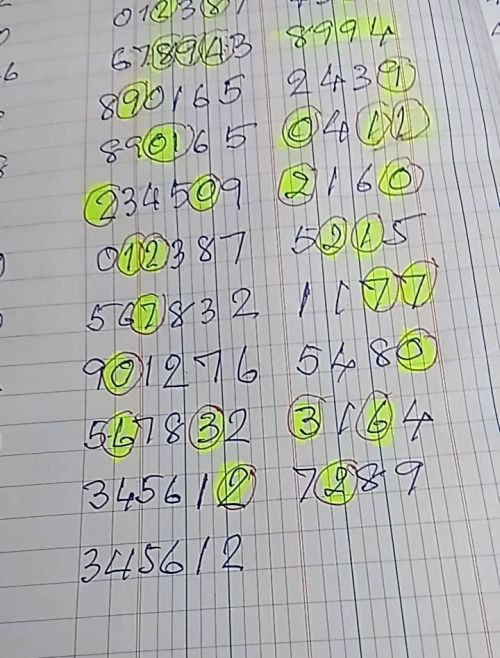 012387
678943 8994
890165 2439
890165 0412
234509 2160
012387 5215
567832 1177
901276 5480
567832 3164
345612 7289
345612